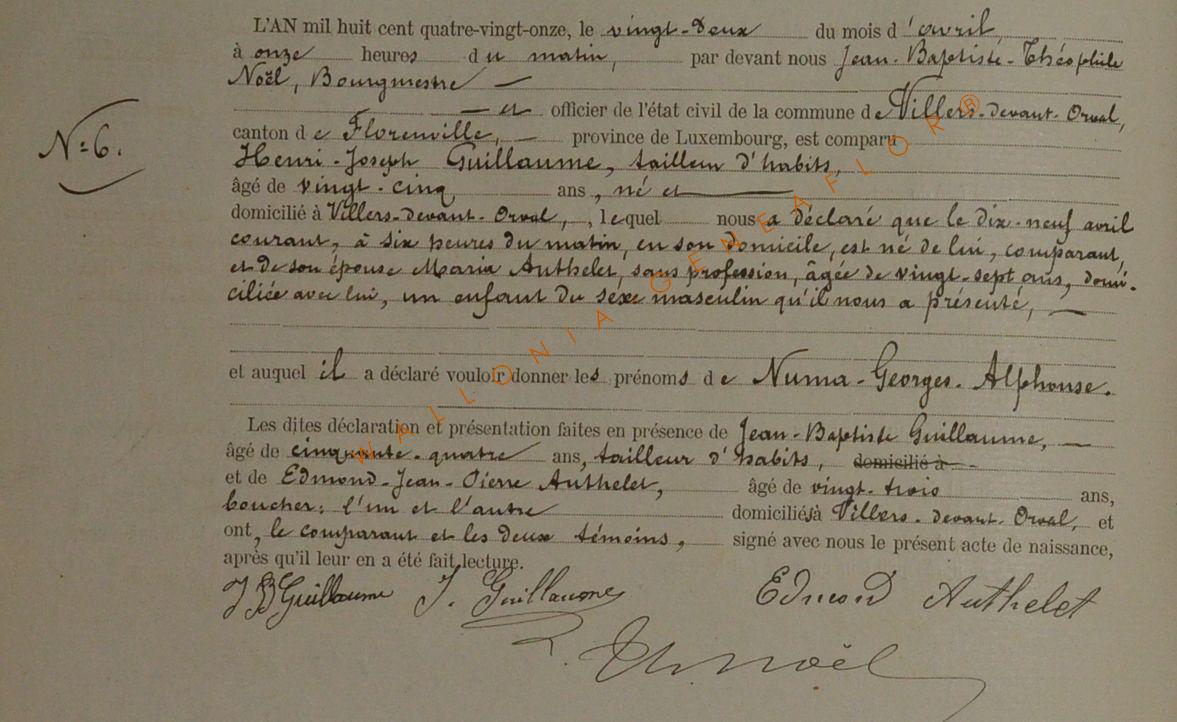 L'AN mil huit cent quatre-vingt-onze, le vingt-deux du mois d'avril,
à onze heures du matin, par devant nous Jean-Baptiste-Théophile
Noël, Bourgmestre —
— et officier de l'état civil de la commune de Villers-devant-Orval,
N:6.
canton de Florenville, — province de Luxembourg, est comparu
Henri-Joseph Guillaume, tailleur d'habits,
âgé de vingt-cinq ans, né et
domicilié à Villers-devant-Orval, , lequel nous a déclaré que le dix-neuf avril
courant, à six heures du matin, en son domicile, est né de lui, comparant,
et de son épouse Maria Authelet, sans profession, âgée de vingt-sept ans, domi-
ciliée avec lui, un enfant du sexe masculin qu'il nous a présenté, —
et auquel il a déclaré vouloir donner les prénoms de Numa-Georges-Alphonse.
Les dites déclaration et présentation faites en présence de Jean-Baptiste Guillaume, —
âgé de cinquante-quatre ans, tailleur d'habits, domicilié à
et de Edmond-Jean-Pierre Authelet, âgé de vingt-trois ans,
boucher; l'un et l'autre domiciliés à Villers-devant-Orval, et
ont, le comparant et les deux témoins, signé avec nous le présent acte de naissance,
après qu'il leur en a été fait lecture.
J B Guillaume J. Guillaume Edmond Authelet
Th Noël
WALLONIA GENEAFLOR®